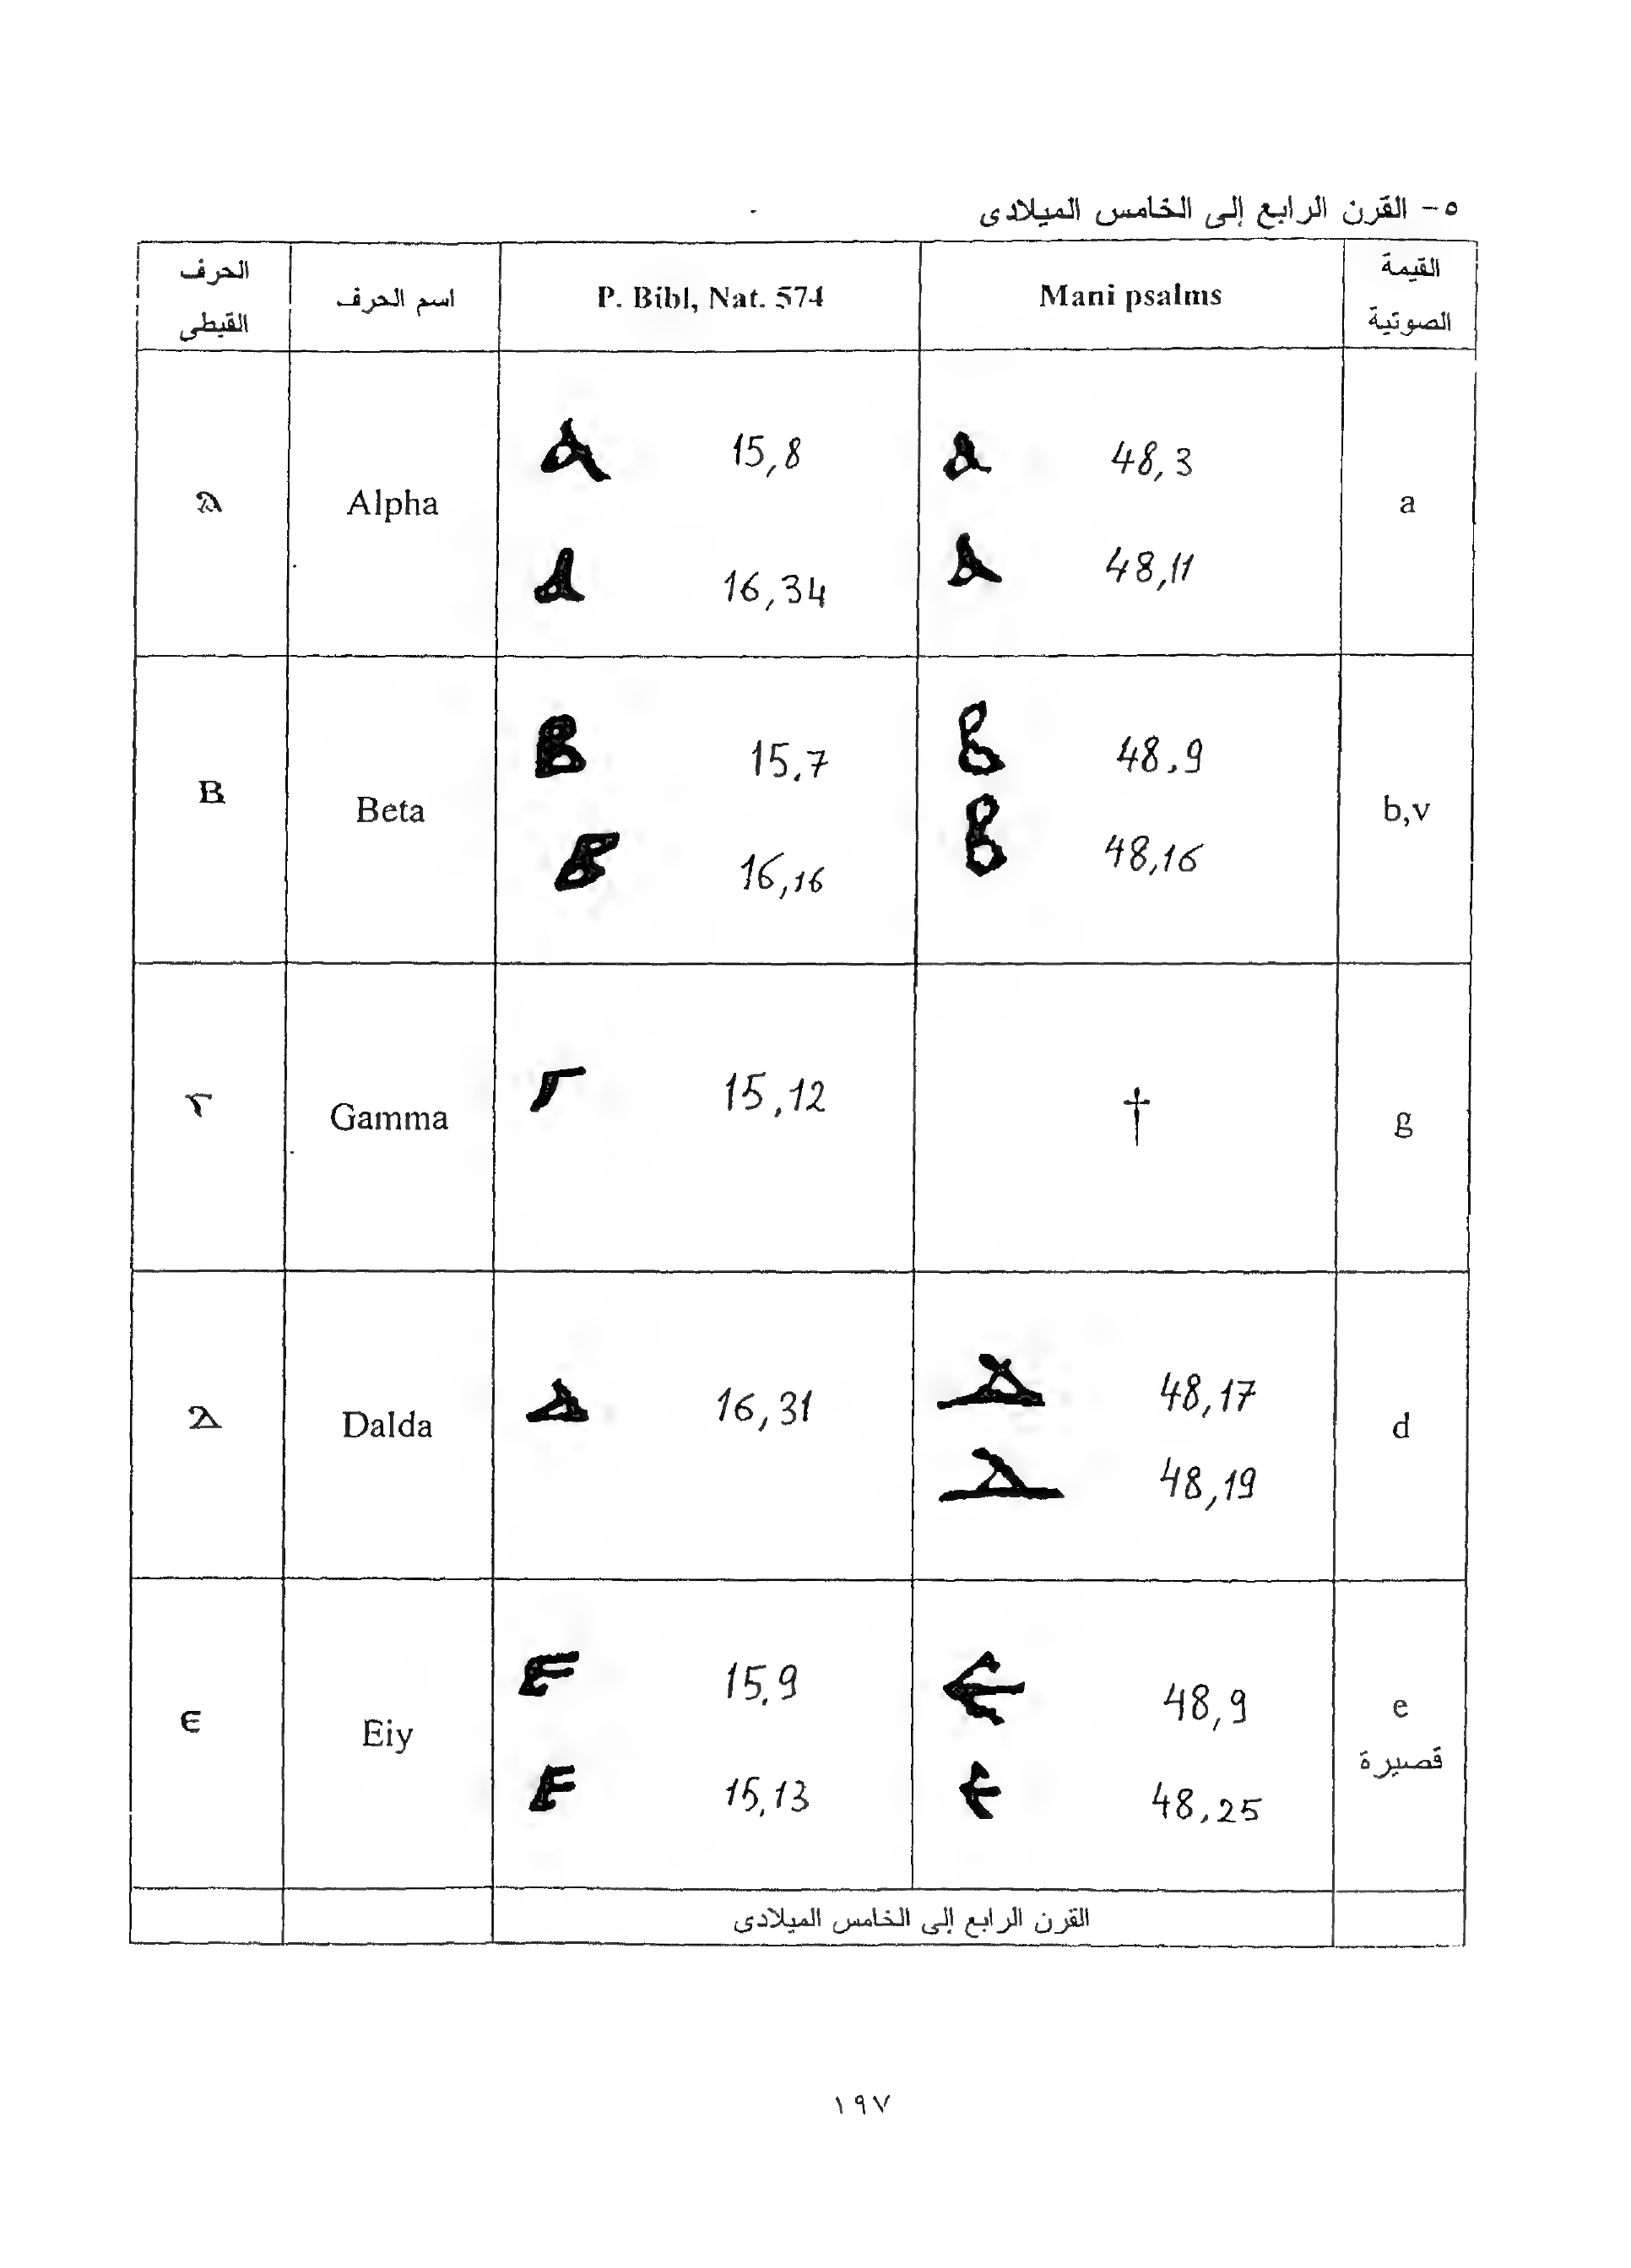 ٥- القرن الرابع إلى الخامس الميلادى
الحرف القبطى	اسم الحرف	P. Bibl, Nat. 574	Mani psalms	القيمة الصوتية
ⲁ	Alpha	ⲁ 15,8	ⲁ 48,3	a
ⲁ 16,34	ⲁ 48,11
ⲃ	Beta	ⲃ 15,7	ⲃ 48,9	b,v
ⲃ 16,16	ⲃ 48,16
ⲅ	Gamma	ⲅ 15,12	†	g
ⲇ	Dalda	ⲇ 16,31	ⲇ 48,17	d
ⲇ 48,19
ⲉ	Eiy	ⲉ 15,9	ⲉ 48,9	e قصيرة
ⲉ 15,13	ⲉ 48,25
القرن الرابع إلى الخامس الميلادى
١٩٧